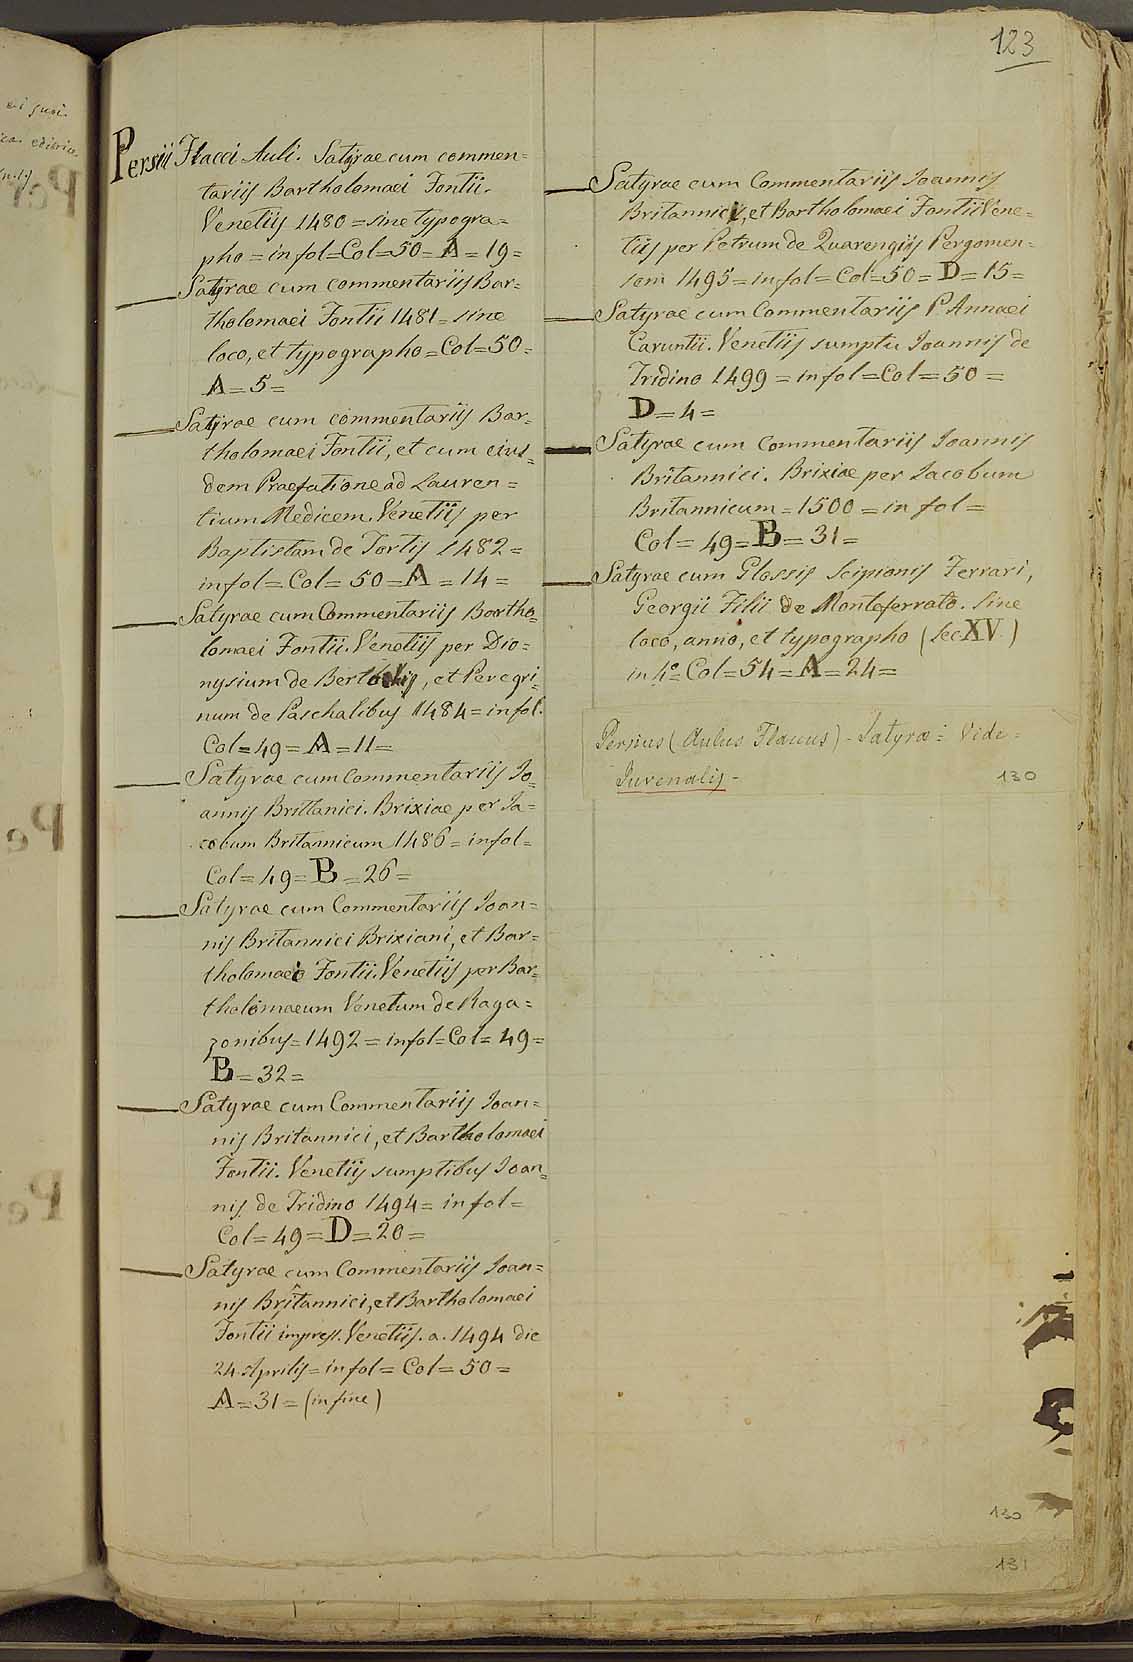 123
Persii Flacci Auli. Satyrae cum commen=
tariis Bartholomaei Fontii.
Venetiis 1480 = sine typogra=
pho = in fol = Col = 50 = A = 19 =
Satyrae cum commentariis Bar=
tholomaei Fontii 1481 = sine
loco, et typographo = Col = 50 =
A = 5 =
Satyrae cum commentariis Bar=
tholomaei Fontii, et cum eius=
dem Praefatione ad Lauren=
tium Medicem. Venetiis per
Baptistam de Tortis 1482 =
in fol = Col = 50 = A = 14 =
Satyrae cum Commentariis Bartho=
lomaei Fontii. Venetiis per Dio=
nysium de, et Peregri=
num de Paschalibus 1484 = in fol.
Col = 49 = A = 11 =
Satyrae cum Commentariis Jo=
annis Brittanici. Brixiae per Ja=
cobum Britannicum 1486 = in fol =
Col = 49 = B = 26 =
Satyrae cum Commentariis Joan=
nis Britannici Brixiani, et Bar=
tholomaei Fontii. Venetiis per Bar=
tholomaeum Venetum de Raga=
zonibus = 1492 = in fol = Col = 49 =
B = 32 =
Satyrae cum Commentariis Joan=
nis Britannici, et Bartholomaei
Fontii. Venetiis sumptibus Joan=
nis de Tridino 1494 = in fol =
Col = 49 = D = 20 =
Satyrae cum Commentariis Joan=
nis Britannici, et Bartholomaei
Fontii impress. Venetiis. a. 1494 die
24 Aprilis = in fol = Col = 50 =
A = 31 = (in fine)
Satyrae cum Commentariis Joannis
Britannici, et Bartholomaei Fontii Vene=
tiis per Petrum de Quarengiis Pergomen=
sem 1495 = in fol = Col = 50 = D = 15 =
Satyrae cum Commentariis P Annaei
Caruntii. Venetiis sumptu Joannis de
Tridino 1499 = in fol = Col = 50 =
D = 4 =
Satyrae cum Commentariis Joannis
Britannici. Brixiae per Jacobum
Britannicum = 1500 = in fol =
Col = 49 = B = 31 =
Satyrae cum Glossis Scipionis Ferrari,
Georgii Filii de Monteferrato. Sine
loco, anno, et typographo (sec XV.)
in 4° = Col = 54 = A = 24 =
Persius (Aulus Flaccus) - Satyræ = Vide =
Juvenalis -
130
130
131